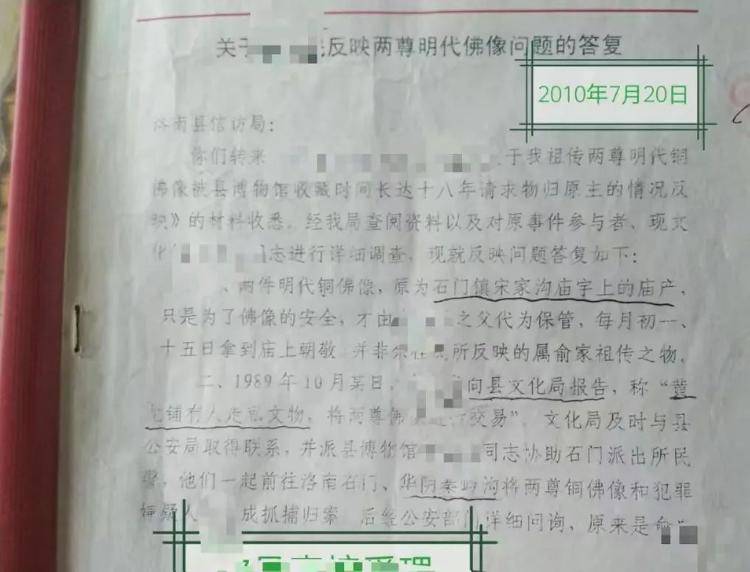 关于 反映两尊明代佛像问题的答复
2010年7月20日
洛南县信访局：
你们转来 于我祖传两尊明代铜
佛像被县博物馆收藏时间长达十八年请求物归原主的情况反
映》的材料收悉。经我局查阅资料以及对原事件参与者、现文
化 志进行详细调查，现就反映问题答复如下：
、两件明代铜佛像，原为石门镇宋家沟庙宇上的庙产，
只是为了佛像的安全，才由 之父代为保管，每月初一、
十五日拿到庙上朝敬，并非 所反映的属俞家祖传之物。
二、1989年10月某日， 向县文化局报告，称“
铺有人走私文物，将两尊佛 进行交易”。文化局及时与县
公安局取得联系，并派县博物馆 同志协助石门派出所民
警，他们一起前往洛南石门、华阴 沟将两尊铜佛像和犯罪
嫌疑人 成抓捕归案，后经公安部门详细问询，原来是俞